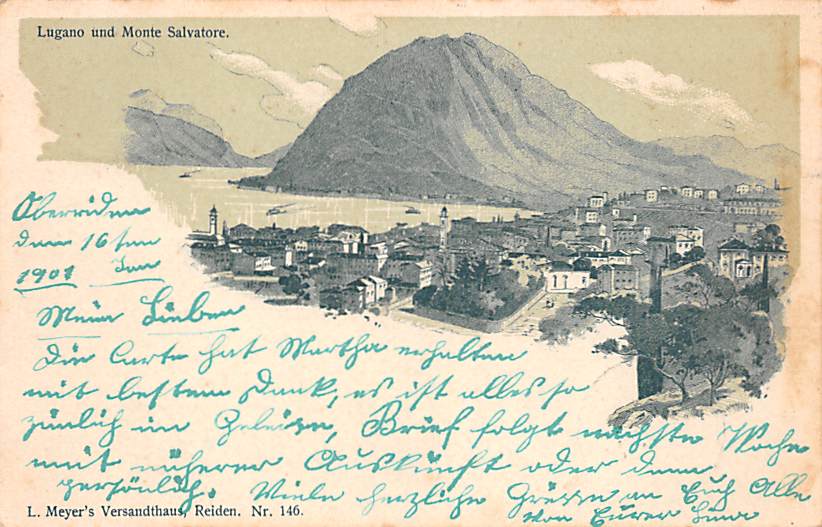 Lugano und Monte Salvatore.
Oberriden
den 16 ten
1901 Jan
Meine Lieben
Die Carte hat Martha erhalten
mit bestem Dank, es ist alles so
zimlich im Geleise, Brief folgt nächste Woche
mit näherer Auskünft oder dann
persönlich. Viele herzliche Grüsse an Euch Alle
von Eurer
L. Meyer's Versandthaus, Reiden. Nr. 146.